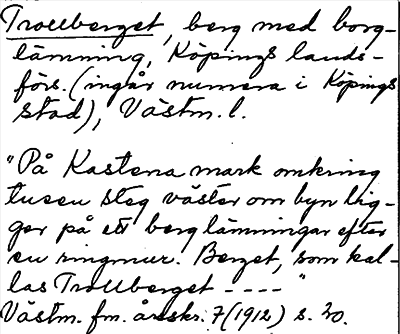 Trollberget, berg med borg-
lämning, Köpings lands-
förs. (ingår numera i Köpings
stad), Västm. l.
"På Kastena mark omkring
tusen steg väster om byn lig-
ger på ett berg lämningar efter
en ringmur. Berget, som kal-
las Trollberget - - - - "
Västm. fm. årsskr. 7 (1912) s. 20.